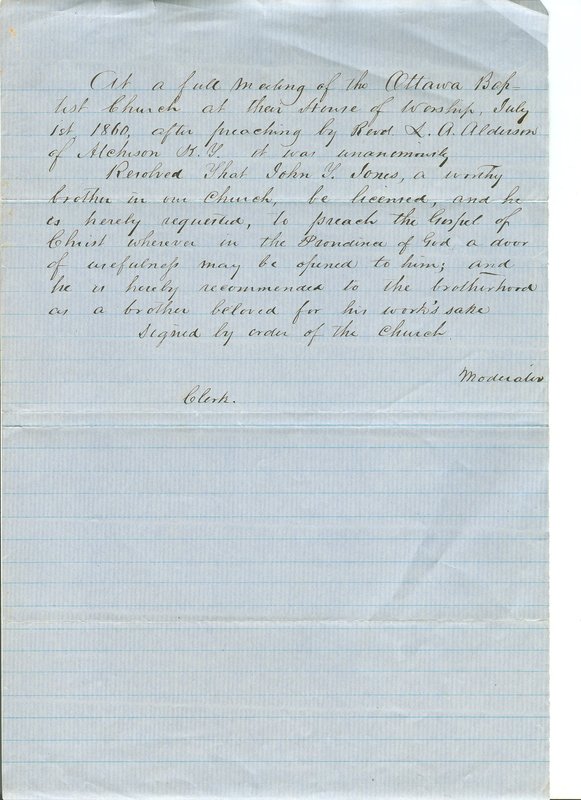 At a full meeting of the Ottawa Bap-
tist Church at their House of Worship, July
1st 1860, after preaching by Revd L. A. Alderson
of Atchison K. T. it was unanimously
Resolved That John T. Jones, a worthy
brother in our church, be licensed, and he
is hereby requested, to preach the Gospel of
Christ wherever in the Providence of God a door
of usefulness may be opened to him; and
he is hereby recommended to the brotherhood
as a brother beloved for his work's sake
Signed by order of the Church
Moderator
Clerk.